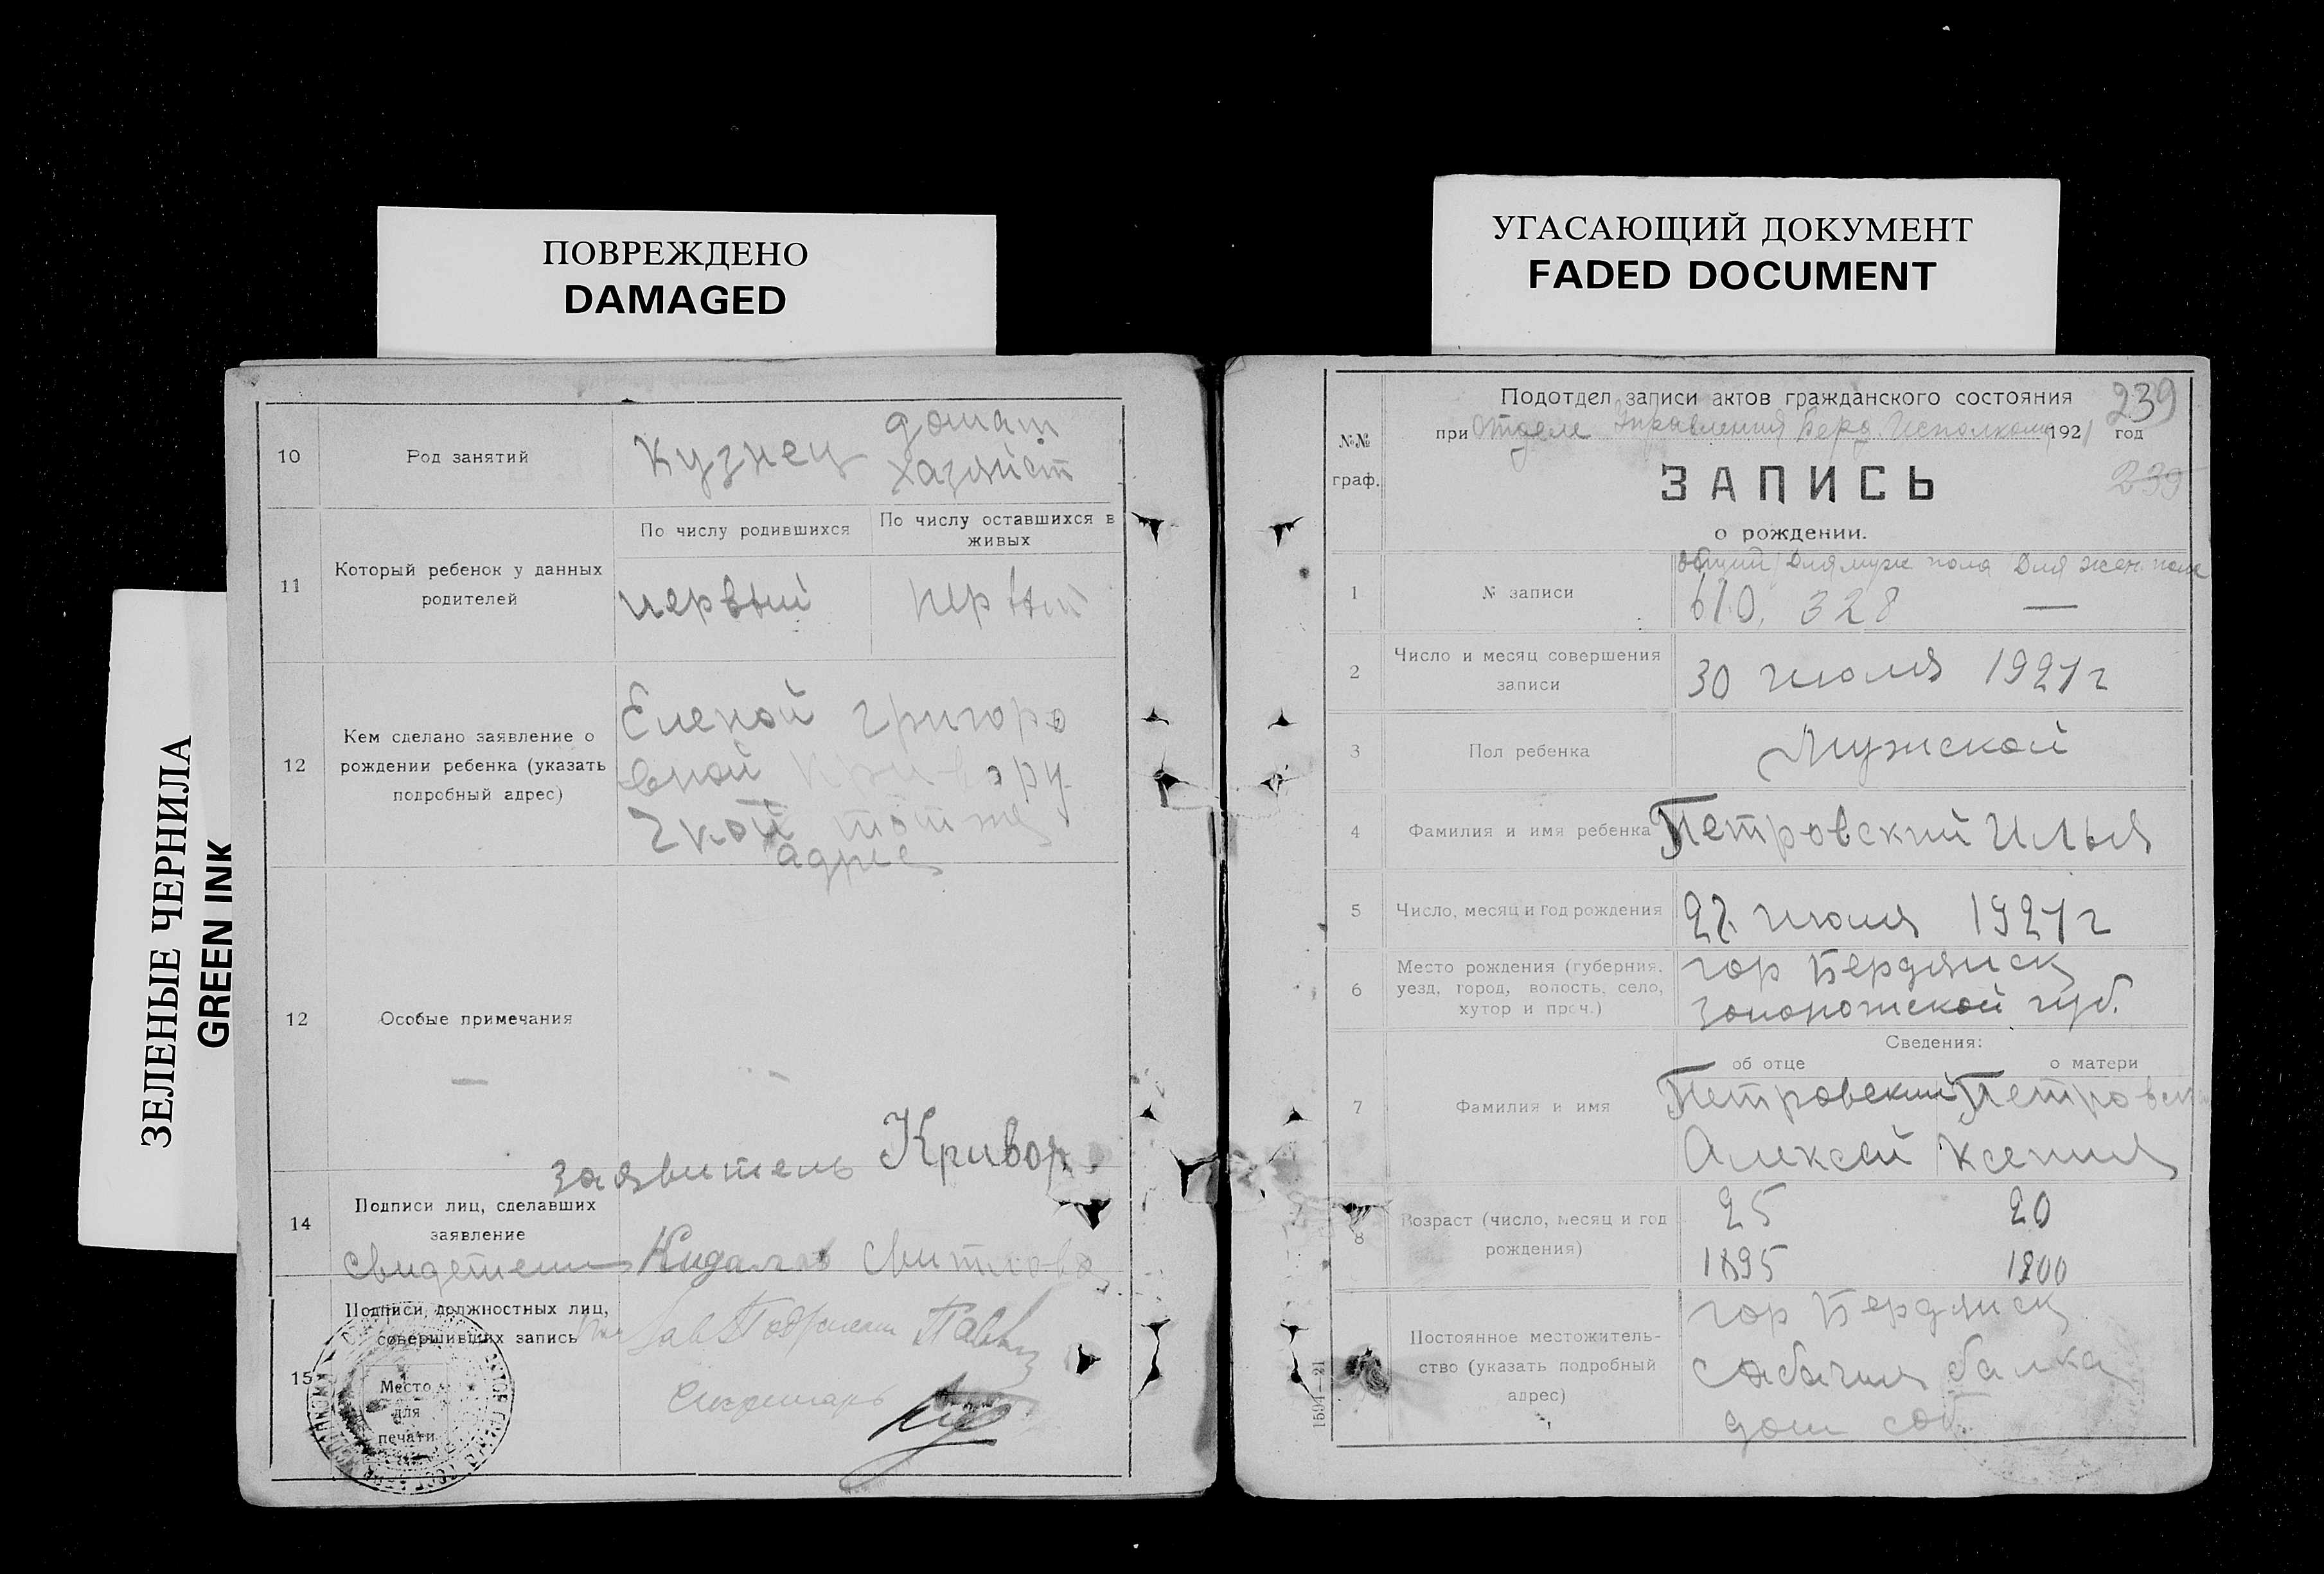 ПОВРЕЖДЕНО
DAMAGED
УГАСАЮЩИЙ ДОКУМЕНТ
FADED DOCUMENT
ЗЕЛЕНЫЕ ЧЕРНИЛА
GREEN INK
10 Род занятий
Кузнец
домаш
хазяйст
11 Который ребенок у данных
родителей
По числу родившихся
По числу оставшихся в
живых
первый
первый
12 Кем сделано заявление о
рождении ребенка (указать
подробный адрес)
Еленой Григоро
вной
тотже
адрес
12 Особые примечания
—
заявитель Кривор
14 Подписи лиц, сделавших
заявление
свидетели
15 Подписи должностных лиц,
совершивших запись
Место
для
печати
Секретарь
№№
граф.
Подотдел записи актов гражданского состояния
239
при Отделе Управления Берд. Исполкома 1921 год
ЗАПИСЬ
239
о рождении.
1 № записи
общий Для муж пола Для жен. пола
610. 328 —
2 Число и месяц совершения
записи
30 июля 1921 г
3 Пол ребенка
Мужской
4 Фамилия и имя ребенка
Петровский Илья
5 Число, месяц и год рождения
22 июля 1921 г
6 Место рождения (губерния,
уезд, город, волость, село,
хутор и проч.)
гор Бердянск
Запорожской губ.
Сведения:
об отце
о матери
7 Фамилия и имя
Петровский
Алексей
Ксения
8 Возраст (число, месяц и год
рождения)
25 20
1895 1900
Постоянное местожитель-
ство (указать подробный
адрес)
гор Бердянск
Сабачия балка
дом соб
1594—21